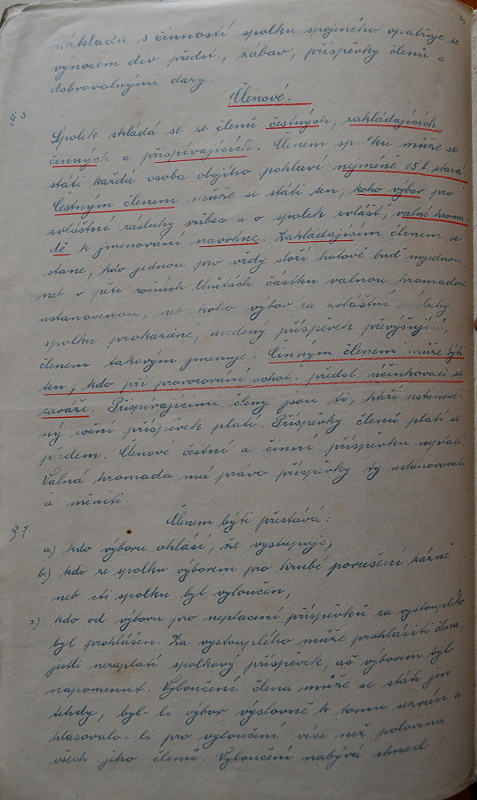 nákladu s činností spolku spojeného opatřuje se
výnosem div. předst., zábav, příspěvky členů a
dobrovolnými dary.
Členové.
§ 5
Spolek skládá se ze členů čestných, zakládajících,
činných a přispívajících. Členem sp lku může se
státi každá osoba obojího pohlaví nejméně 15 l. stará.
Čestným členem může se státi ten, koho výbor pro
zvláštní zásluhy vůbec a o spolek zvlášť, valné hroma-
dě k jmenování navrhne. Zakládajícím členem se
stane, kdo jednou pro vždy složí hotově buď najednou
neb v pěti ročních lhůtách částku valnou hromadou
ustanovenou, neb koho výbor za zvláštní zásluhy
spolku prokázané, uvedený příspěvek převyšující,
členem takovým jmenuje. Činným členem může býti
ten, kdo při provozování ochot. předst. účinkovati se
zaváže. Přispívajícími členy jsou ti, kteří ustanove-
ný roční příspěvek platí. Příspěvky členů platí se
předem. Členové čestní a činní příspěvku neplatí.
Valná hromada má právo příspěvky ty ustanovovati
a měniti.
§ 7.
Členem býti přestává:
a.) kdo výboru ohlásí, že vystupuje,
b.) kdo ze spolku výborem pro hrubé porušení kázně
neb cti spolku byl vyloučen,
kdo od výboru pro neplacení příspěvků za vystouplého
byl prohlášen. Za vystouplého může prohlásiti člena,
jestli nezaplatí spolkový příspěvek, ač výborem byl
napomenut. Vyloučení člena může se státi jen
tehdy, byl-li výbor výslovně k tomu sezván a
hlasovalo-li pro vyloučení více než polovina
všech jeho členů. Vyloučení nabývá ihned